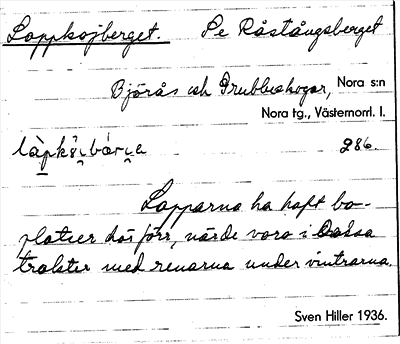 Lappkojberget. Se Råstångsberget
Björås och Grubbeskogar, Nora s:n
Nora tg., Västernorrl. l.
286.
Lapparna ha haft bo-
platser där förr, när de voro i dessa
trakter med renarna under vintrarna.
Sven Hiller 1936.